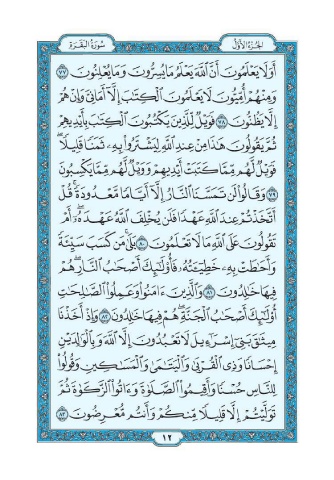 الجزء الأول سورة البقرة
أَوَلَا يَعْلَمُونَ أَنَّ ٱللَّهَ يَعْلَمُ مَا يُسِرُّونَ وَمَا يُعْلِنُونَ ٧٧
وَمِنْهُمْ أُمِّيُّونَ لَا يَعْلَمُونَ ٱلْكِتَٰبَ إِلَّآ أَمَانِىَّ وَإِنْ هُمْ
إِلَّا يَظُنُّونَ ٧٨ فَوَيْلٌ لِّلَّذِينَ يَكْتُبُونَ ٱلْكِتَٰبَ بِأَيْدِيهِمْ
ثُمَّ يَقُولُونَ هَٰذَا مِنْ عِندِ ٱللَّهِ لِيَشْتَرُوا۟ بِهِۦ ثَمَنًا قَلِيلًا ۖ
فَوَيْلٌ لَّهُم مِّمَّا كَتَبَتْ أَيْدِيهِمْ وَوَيْلٌ لَّهُم مِّمَّا يَكْسِبُونَ
٧٩ وَقَالُوا۟ لَن تَمَسَّنَا ٱلنَّارُ إِلَّآ أَيَّامًا مَّعْدُودَةً ۚ قُلْ
أَتَّخَذْتُمْ عِندَ ٱللَّهِ عَهْدًا فَلَن يُخْلِفَ ٱللَّهُ عَهْدَهُۥٓ ۖ أَمْ
تَقُولُونَ عَلَى ٱللَّهِ مَا لَا تَعْلَمُونَ ٨٠ بَلَىٰ مَن كَسَبَ سَيِّئَةً
وَأَحَٰطَتْ بِهِۦ خَطِيٓـَٔتُهُۥ فَأُو۟لَٰٓئِكَ أَصْحَٰبُ ٱلنَّارِ ۖ هُمْ
فِيهَا خَٰلِدُونَ ٨١ وَٱلَّذِينَ ءَامَنُوا۟ وَعَمِلُوا۟ ٱلصَّٰلِحَٰتِ
أُو۟لَٰٓئِكَ أَصْحَٰبُ ٱلْجَنَّةِ ۖ هُمْ فِيهَا خَٰلِدُونَ ٨٢ وَإِذْ أَخَذْنَا
مِيثَٰقَ بَنِىٓ إِسْرَٰٓءِيلَ لَا تَعْبُدُونَ إِلَّا ٱللَّهَ وَبِٱلْوَٰلِدَيْنِ
إِحْسَانًا وَذِى ٱلْقُرْبَىٰ وَٱلْيَتَٰمَىٰ وَٱلْمَسَٰكِينِ وَقُولُوا۟
لِلنَّاسِ حُسْنًا وَأَقِيمُوا۟ ٱلصَّلَوٰةَ وَءَاتُوا۟ ٱلزَّكَوٰةَ ثُمَّ
تَوَلَّيْتُمْ إِلَّا قَلِيلًا مِّنكُمْ وَأَنتُم مُّعْرِضُونَ ٨٣
١٢